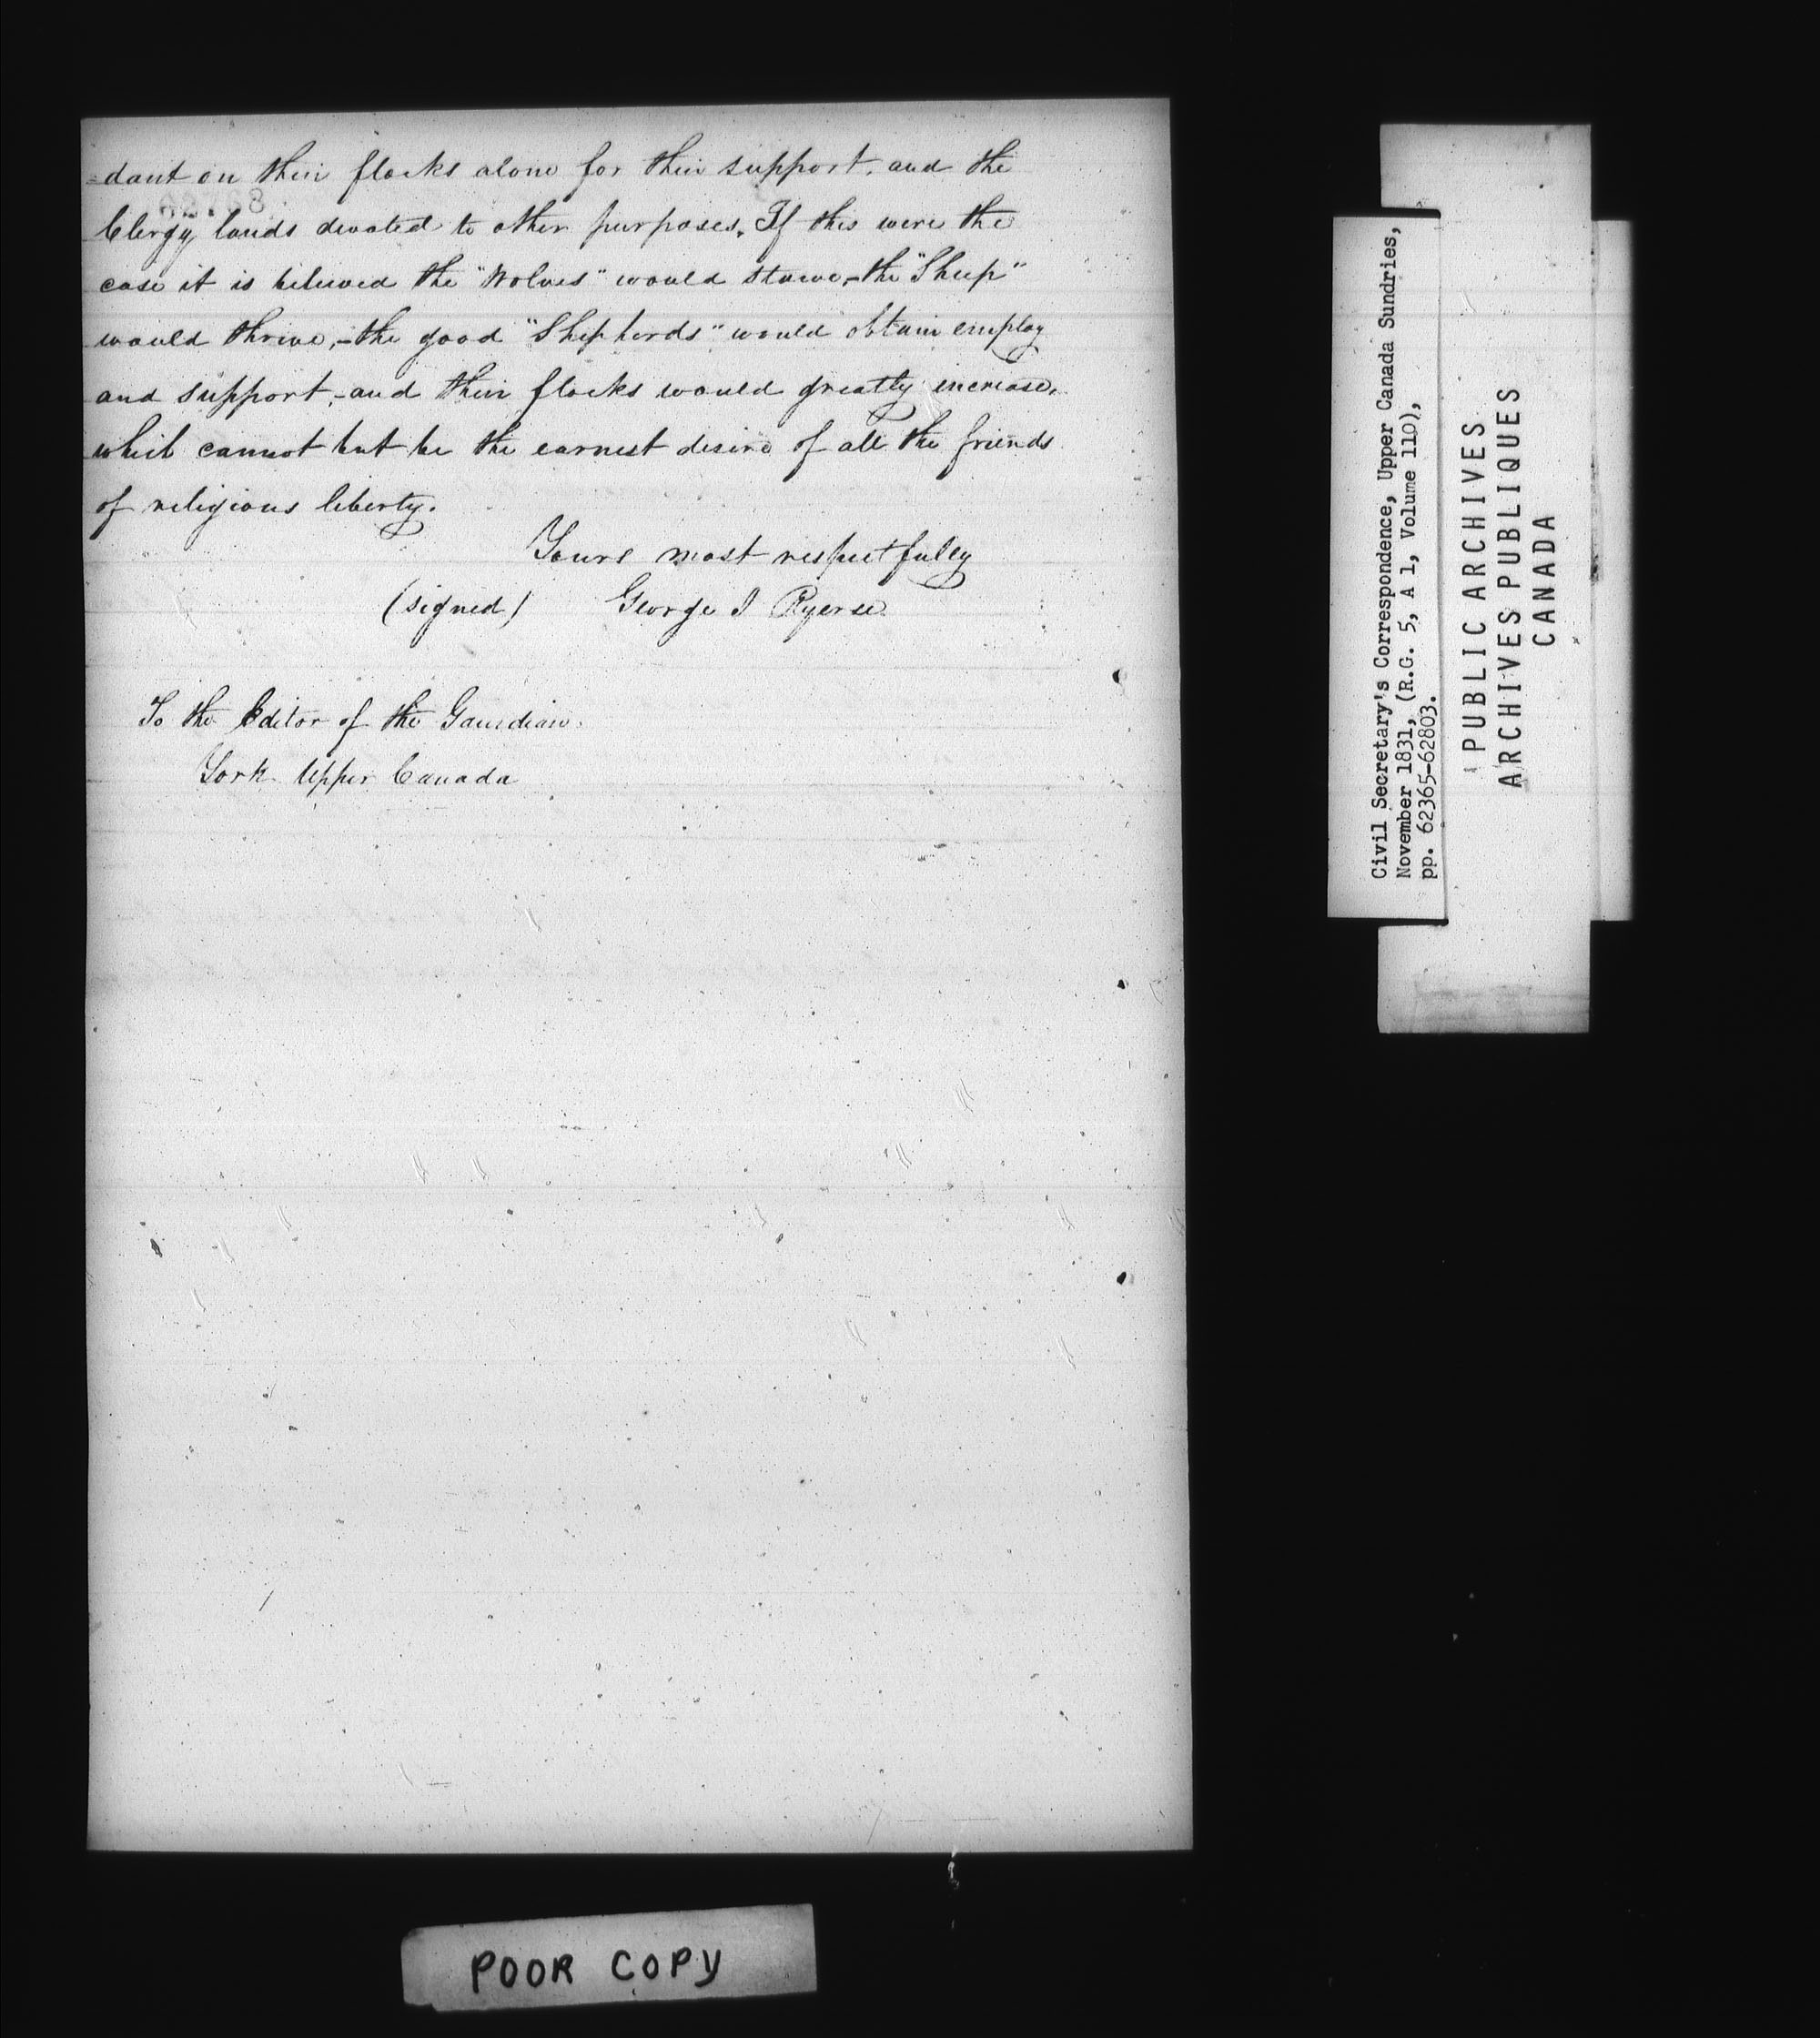 =dant on their flocks alone for their support, and the
Clergy lands devoted to other purposes. If this were the
case it is believed the "Wolves" would starve,-the "Sheep"
would thrive,-the good "Shepherds" would obtain employ
and support,-and their flocks would greatly increase,
which cannot but be the earnest desire of all the friends
of religious liberty.
Yours most respectfully
(signed) George J Ryerse
To the Editor of the Gaurdian.
York Upper Canada
Civil Secretary's Correspondence, Upper Canada Sundries,
November 1831, (R.G. 5, A 1, Volume 110),
pp. 62365-62803.
PUBLIC ARCHIVES
ARCHIVES PUBLIQUES
CANADA
POOR COPY